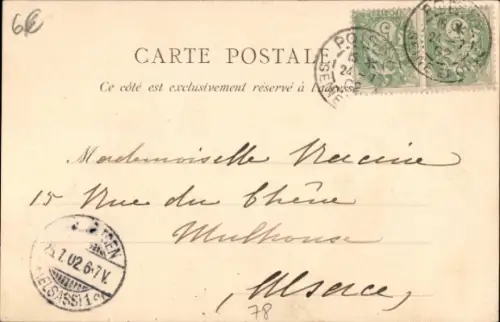 6€
CARTE POSTALE
Ce côté est exclusivement réservé à l'adresse
Mademoiselle Racine
15 Rue du Chêne
Mulhouse
Alsace
78
25.7.02.6-7V.
(ELSASS) 1